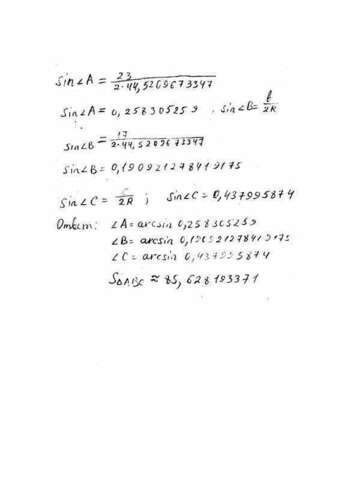 sin∠A = 23 / 2·44,5209673347
sin∠A = 0,258305259 , sin∠B = b / 2R
sin∠B = 17 / 2·44,5209673347
sin∠B = 0,190921278419175
sin∠C = c / 2R ; sin∠C = 0,437995874
Ответ: ∠A = arcsin 0,258305259
∠B = arcsin 0,190921278419175
∠C = arcsin 0,437995874
S△ABC ≈ 85,628193371